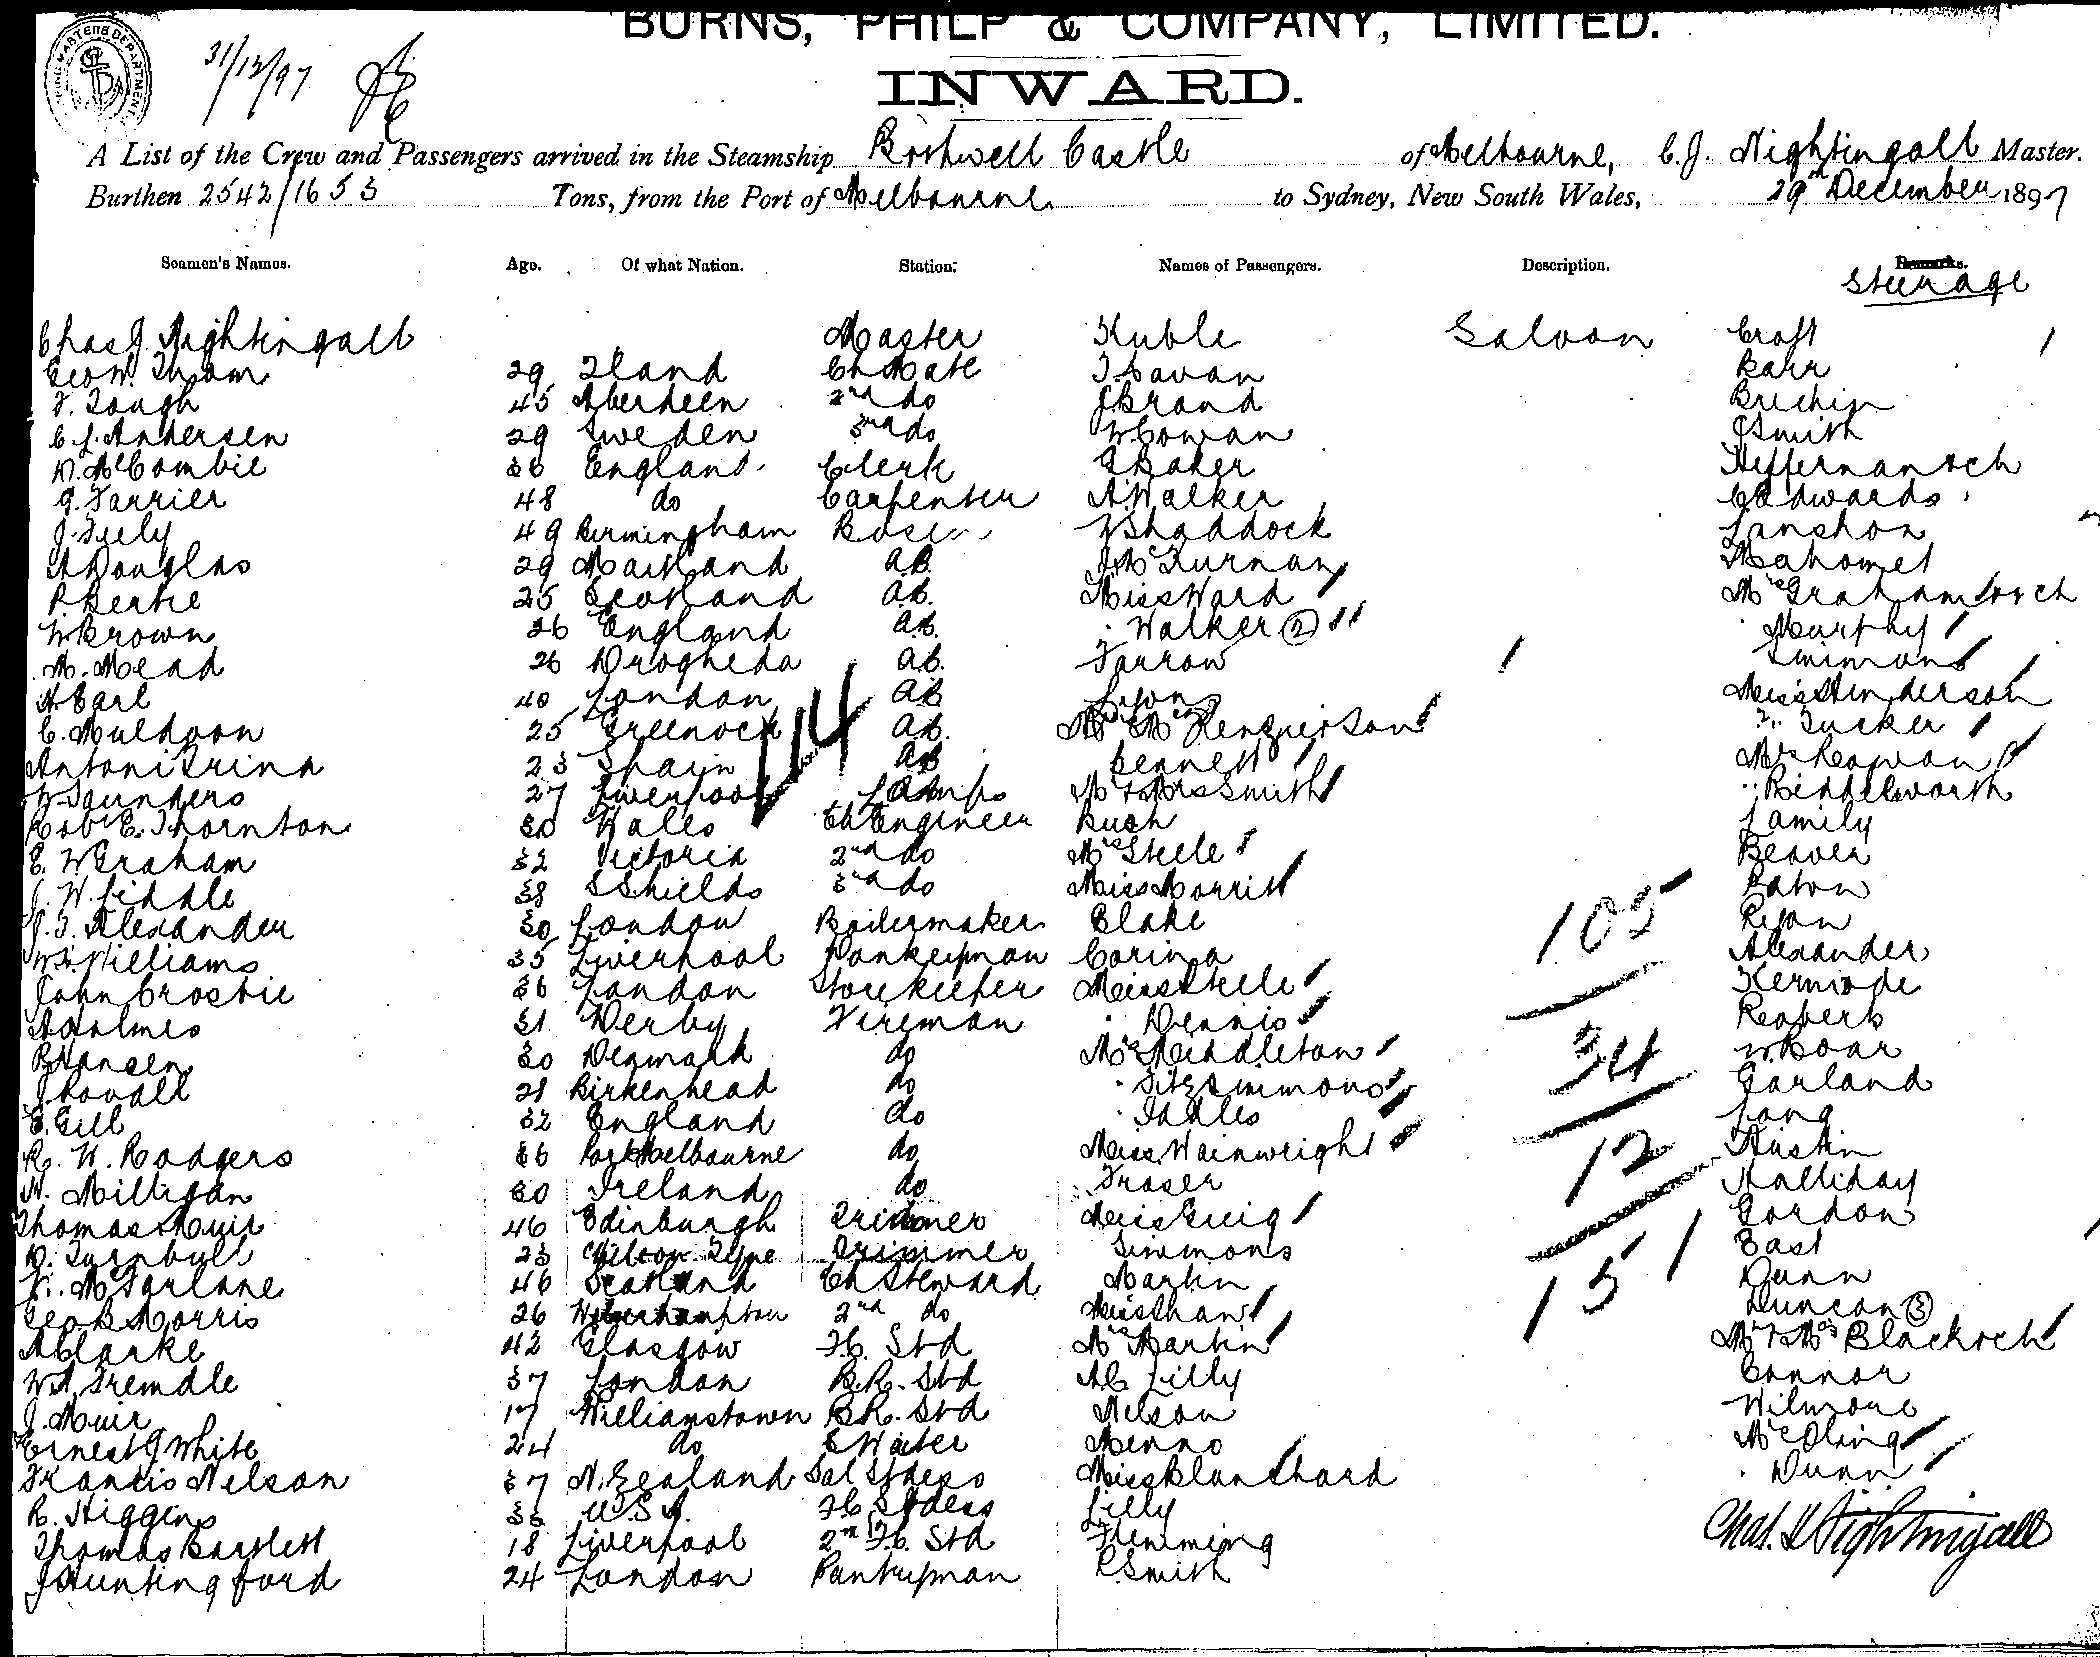 BURNS, PHILP & COMPANY, LIMITED.
31/12/97
INWARD.
A List of the Crew and Passengers arrived in the Steamship Bothwell Castle of Melbourne, C. J. Nightingall Master.
Burthen 2542/1653 Tons, from the Port of Melbourne to Sydney, New South Wales, 29th December 1897
Seamen's Names. Age. Of what Nation. Station. Names of Passengers. Description. Remarks.
Steerage
Chas J Nightingall Master Kuble Saloon Croft
Geo W. Thom 29 Ch Mate J. Cavan Barr
J. Tough 45 Aberdeen 2nd do J Brand Brechin
C. J. Andersen 29 Sweden 3rd do W Cowan J Smith
D. McCombie 36 England Clerk G Baker Heffernan
G. Farrier 48 do Carpenter A Walker C Edwards
J. Feely 49 Birmingham Bosen W Shaddock
A Douglas 29 Maitland A.B. Mahomet
P. Bertie 25 Scotland A.B. Miss Ward Mrs Graham
W Brown 26 England A.B. " Walker (2) " Murphy
M. Mead 26 Drogheda A.B. Farrow Simmons
A Carl 40 London A.B. Lyons Miss Henderson
C. Muldoon 25 Greenock A.B. Mr McKenzie & Son " Tucker
Antoni Trina 23 Spain A.B. Bennett Mrs
W Saunders 27 Liverpool Lamps Mr & Mrs Smith
Robt E. Thornton 30 Wales Ch Engineer Rush Family
E. W Graham 32 Victoria 2nd do Mrs Steele Beaver
J. W. Liddle 38 S Shields 3rd do Miss Morritt Eaton
J. T. Alexander 30 London Boilermaker Blake Ryan
W. Williams 35 Liverpool Donkeyman Corina Alexander
John Crosbie 36 London Storekeeper Miss Steele Kermode
A Holmes 31 Derby Fireman " Dennis Roberts
P Hansen 30 Denmark do Mrs Middleton W. Boar
J Lovall 28 Birkenhead do " Fitzsimmons Garland
E. Gill 32 England do Lang
R. W. Rodgers 36 Port Melbourne do Miss Wainwright Austin
H. Milligan 30 Ireland do Fraser Halliday
Thomas Muir 46 Edinburgh Trimmer Miss Greig Gordon
D. Turnbull 23 Trimmer Simmons East
W. McFarlane 46 Scotland Ch Steward Martin Dunn
Geo B Morris 26 Wolverhampton 2nd do Miss Shaw Duncan (3)
A Clarke 42 Glasgow F.C. Std Mrs Martin Mr & Mrs Black & ch
W A Tremdle 37 London B.R. Std A C Lilly Connor
J. Muir 17 Williamstown B.R. Std Nelson Wilmore
Ernest G White 24 do S Waiter Menno
Francis Nelson 37 N. Zealand Sal Stdess Miss Blanchard " Dunn
R. Higgins 33 U.S.A. F.C. Stdess Lilly
Thomas Bartlett 18 Liverpool 2nd F.C. Std Flemming
J Huntingford 24 London Pantryman R Smith
114
105
34
12
151
Chas. J Nightingall